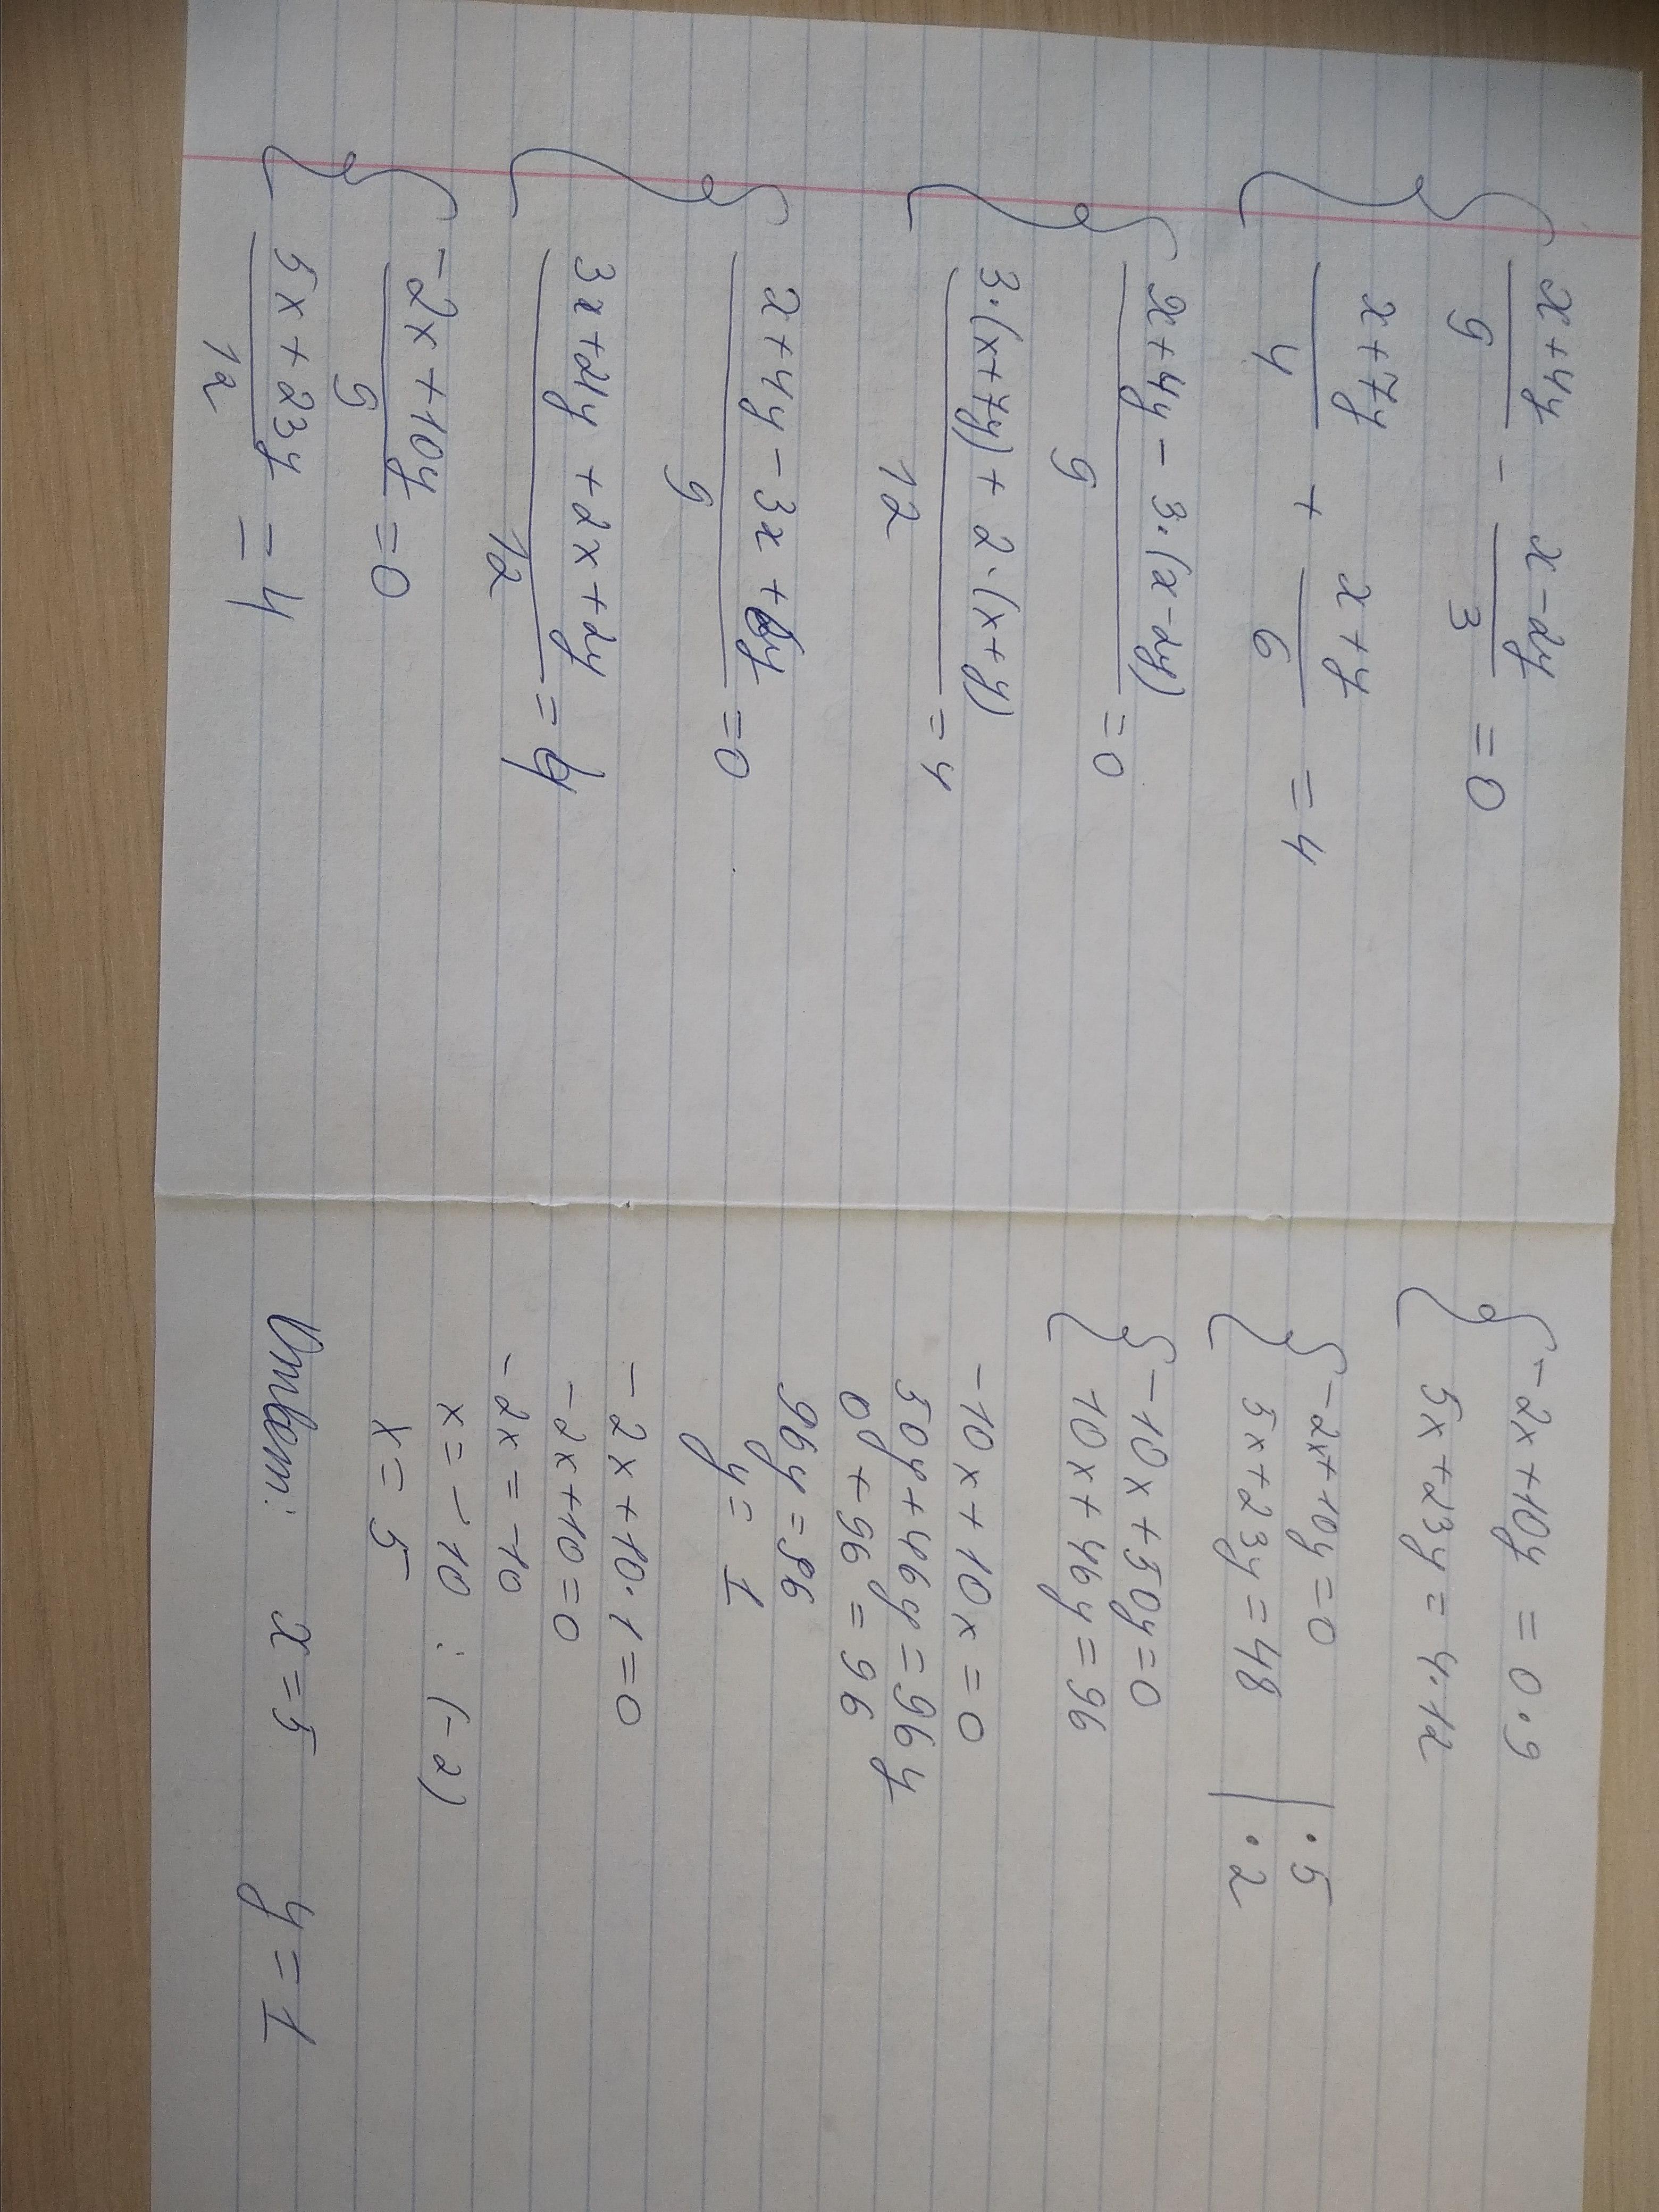 { x+4y/9 - x-2y/3 = 0
x+7y/4 + x+y/6 = 4
{ x+4y - 3·(x-2y)/9 = 0
3·(x+7y) + 2·(x+y)/12 = 4
{ x+4y - 3x + 6y/9 = 0
3x+21y + 2x+2y/12 = 4
{ -2x+10y/9 = 0
5x+23y/12 = 4
{ -2x+10y = 0·9
5x+23y = 4·12
{ -2x+10y=0 | ·5
5x+23y=48 | ·2
{ -10x+50y=0
10x+46y=96
-10x+10x=0
50y+46y=96y
0y+96=96
96y=96
y=1
-2x+10·1=0
-2x+10=0
-2x=-10
x=-10 : (-2)
x=5
Ответ: x=5 y=1